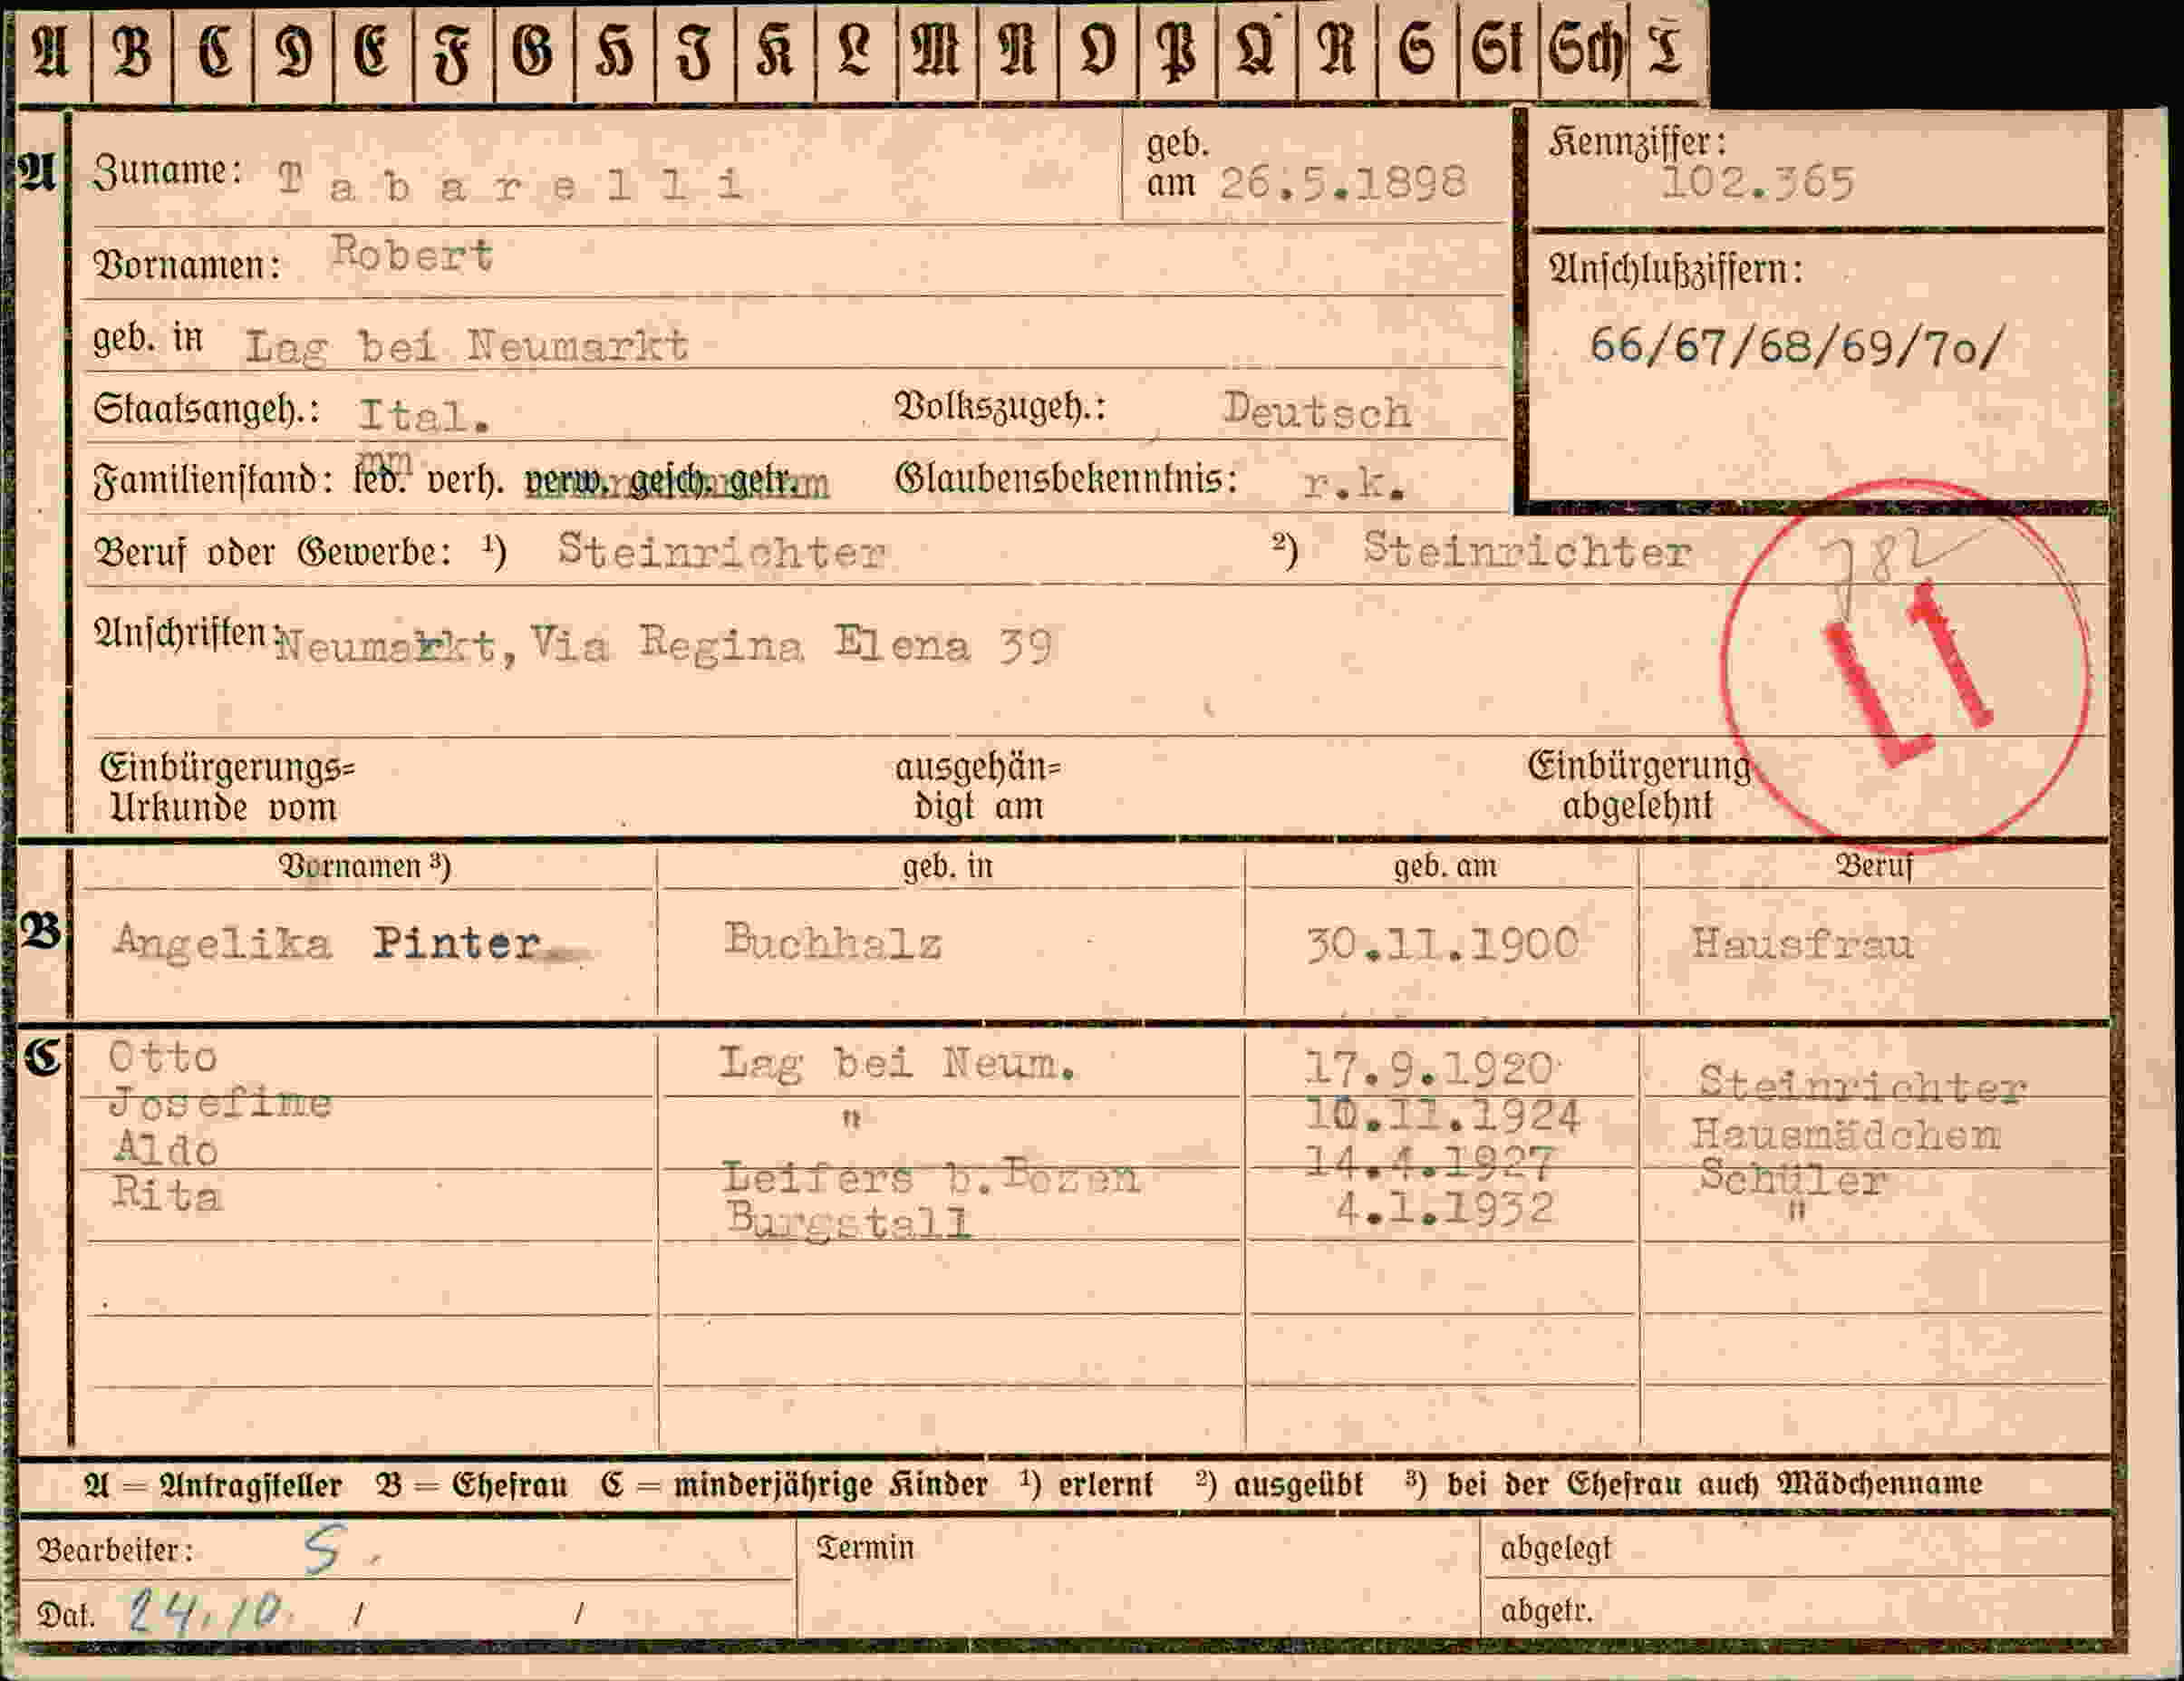 A B C D E F G H I K L M N O P Q R S St Sch T
A Zuname: Tabarelli geb. am 26.5.1898 Kennziffer: 102.365
Vornamen: Robert Anschlußziffern:
geb. in Lag bei Neumarkt 66/67/68/69/7o/
Staatsangeh.: Ital. Volkszugeh.: Deutsch
Familienstand: led. verh. verw. gesch. getr. Glaubensbekenntnis: r.k.
Beruf oder Gewerbe: ¹) Steinrichter ²) Steinrichter 782
Anschriften: Neumarkt, Via Regina Elena 39
L1
Einbürgerungs= Urkunde vom ausgehän= digt am Einbürgerung abgelehnt
Vornamen ³) geb. in geb. am Beruf
B Angelika Pinter Buchhalz 30.11.1900 Hausfrau
C Otto Lag bei Neum. 17.9.1920 Steinrichter
Josefine " 10.11.1924 Hausmädchen
Aldo Leifers b.Bozen 14.4.1927 Schüler
Rita Burgstall 4.1.1932 "
A = Antragsteller B = Ehefrau C = minderjährige Kinder ¹) erlernt ²) ausgeübt ³) bei der Ehefrau auch Mädchenname
Bearbeiter: S. Termin abgelegt
Dat. 24.10. / / abgetr.